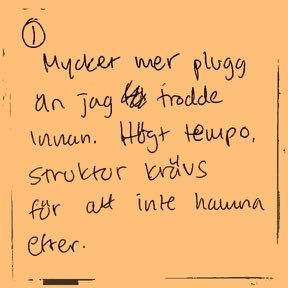 1
Mycket mer plugg
än jag trodde
innan. Högt tempo,
struktur krävs
för att inte hamna
efter.